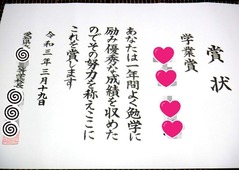 賞状
学業賞
あなたは一年間よく勉学に
励み優秀な成績を収めた
のでその努力を称えここに
これを賞します
令和三年三月十九日